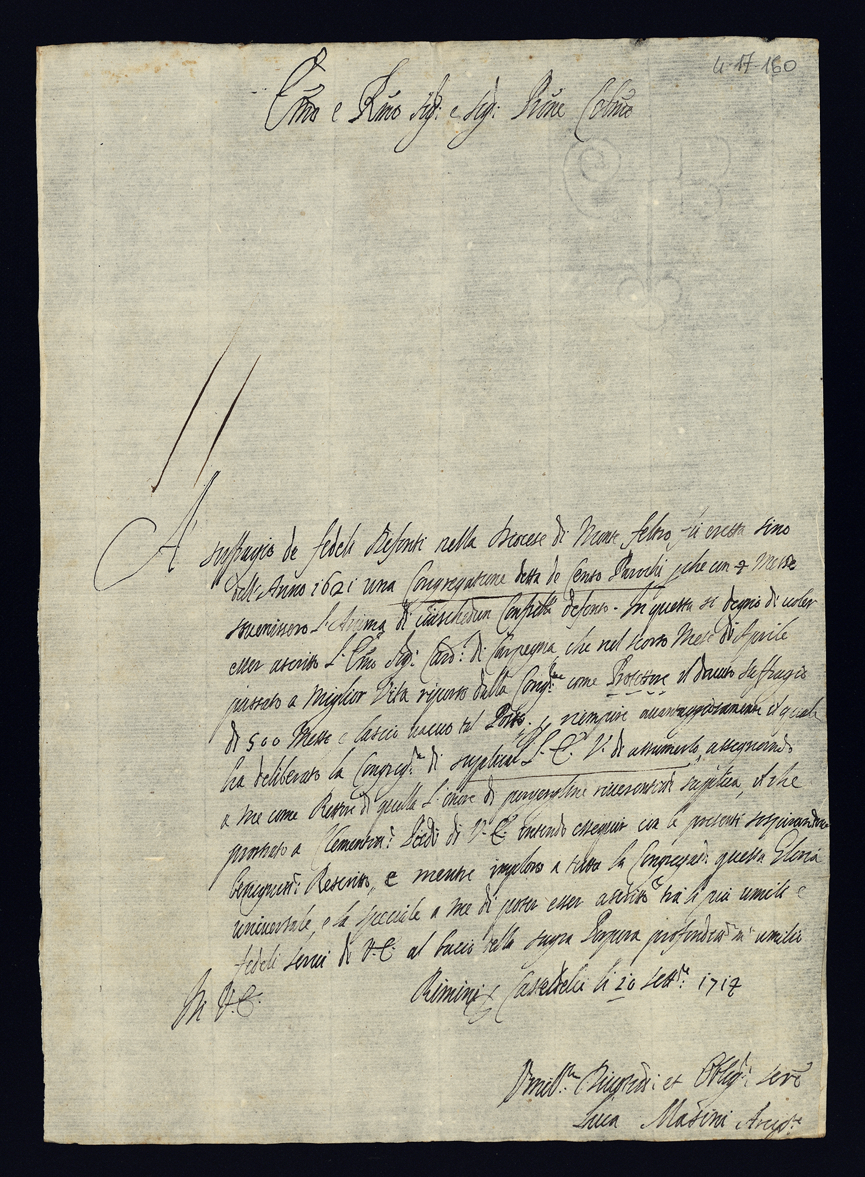 4-17-160
Em̃o e Rm̃o Sig.r e Sig.r Prõne Colmõ
A' suffragio de fedeli Defonti nella Diocese di Monte feltro fù eretta sino
dell'Anno 1621 una Congregatione detta de Cento Parochi, che con 7 Messe
sovenissero l'Anima di ciaschedun Confratto defonto. In questa si degnò di voler
esser ascritto l'Em̃o Sig.r Card.l di Carpegna, che nel scorso Mese di Aprile
passato a Miglior Vita riportò dalla Cong.ne come Protettore il dovuto suffragio
di 500 Messe e lasciò vacuo tal Posto, p riempire avantaggiosamente il quale
ha deliberato la Congreg.ne di supplicar l'E. V. di assumerlo, assegnando
a me come Rettore di quella l'onore di porgerline riverentiss.a supplica, il che
prostrato a Clementiss.i Piedi di V. E. intendo esseguir con la presente
benigniss.o Rescritto, e mentre imploro a tutta la Congregaz.e questa Gloria
universale, e la speciale a me di poter esser ascritto tra li più umili e
fedeli servi di V. E. al bacio della sagra Porpora profondiss.te m'umilio
Di V. E.
Rimini p Casteldelci li 20 sett.re 1714
Umil.mo Divotiss.o et Oblig.o Serv.e
Luca Masini Arcip.te